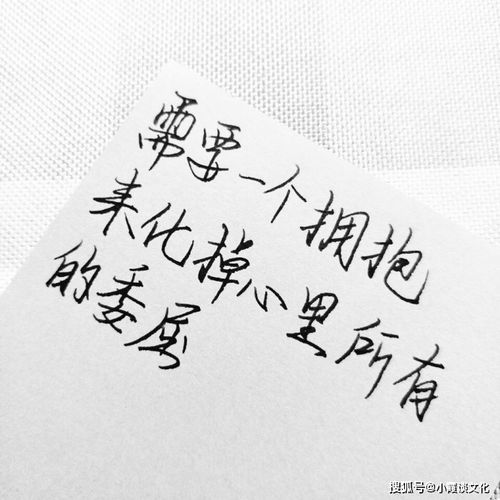 需要一个拥抱
来化掉心里所有
的委屈
搜狐号@小霞谈文化